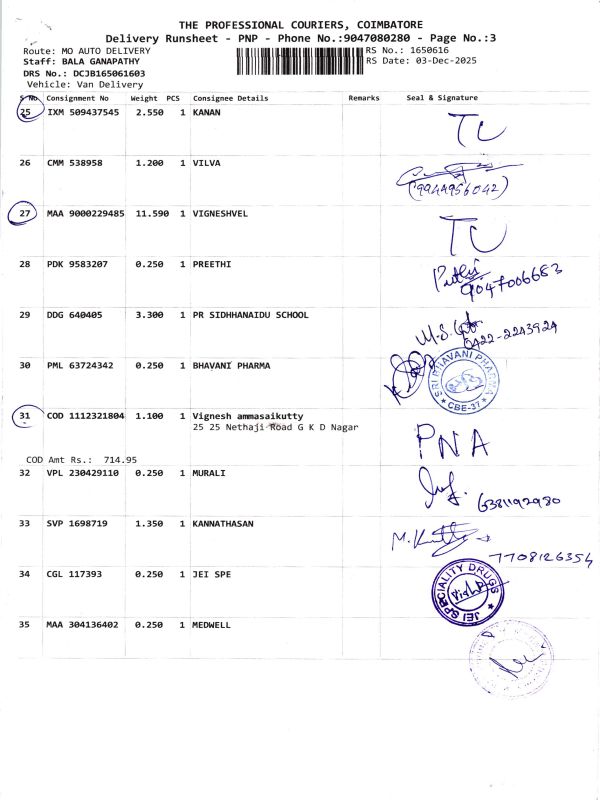 THE PROFESSIONAL COURIERS, COIMBATORE
Delivery Runsheet - PNP - Phone No.:9047080280 - Page No.:3
Route: MO AUTO DELIVERY
RS No.: 1650616
Staff: BALA GANAPATHY
RS Date: 03-Dec-2025
DRS No.: DCJB165061603
Vehicle: Van Delivery
S No Consignment No Weight PCS Consignee Details Remarks Seal & Signature
25 IXM 509437545 2.550 1 KANAN TC
26 CMM 538958 1.200 1 VILVA
(9944956042)
27 MAA 9000229485 11.590 1 VIGNESHVEL TC
28 PDK 9583207 0.250 1 PREETHI
9047006683
29 DDG 640405 3.300 1 PR SIDHHANAIDU SCHOOL
0422-2243924
30 PML 63724342 0.250 1 BHAVANI PHARMA
SRI BHAVANI PHARMA
CBE-37
31 COD 1112321804 1.100 1 Vignesh ammasaikutty
25 25 Nethaji Road G K D Nagar
PNA
COD Amt Rs.: 714.95
32 VPL 230429110 0.250 1 MURALI
6381192980
33 SVP 1698719 1.350 1 KANNATHASAN
7708126354
34 CGL 117393 0.250 1 JEI SPE
JEI SPECIALITY DRUGS
35 MAA 304136402 0.250 1 MEDWELL